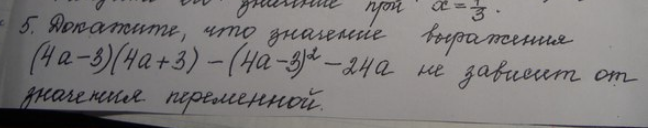 значение при x = 1/3.
5. Докажите, что значение выражения
(4a-3)(4a+3) - (4a-3)² - 24a не зависит от
значения переменной.